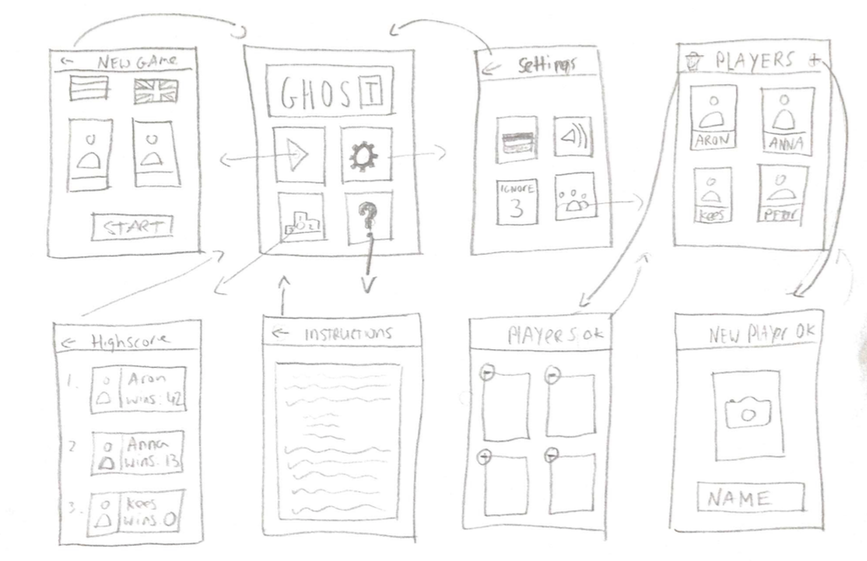 ← NEW GAME
START
GHOST
← Settings
IGNORE
3
PLAYERS +
ARON
ANNA
KEES
PETER
← Highscore
1. Aron
wins: 42
2 Anna
wins: 13
3. Kees
wins 0
← INSTRUCTIONS
PLAYERS OK
NEW Player OK
NAME